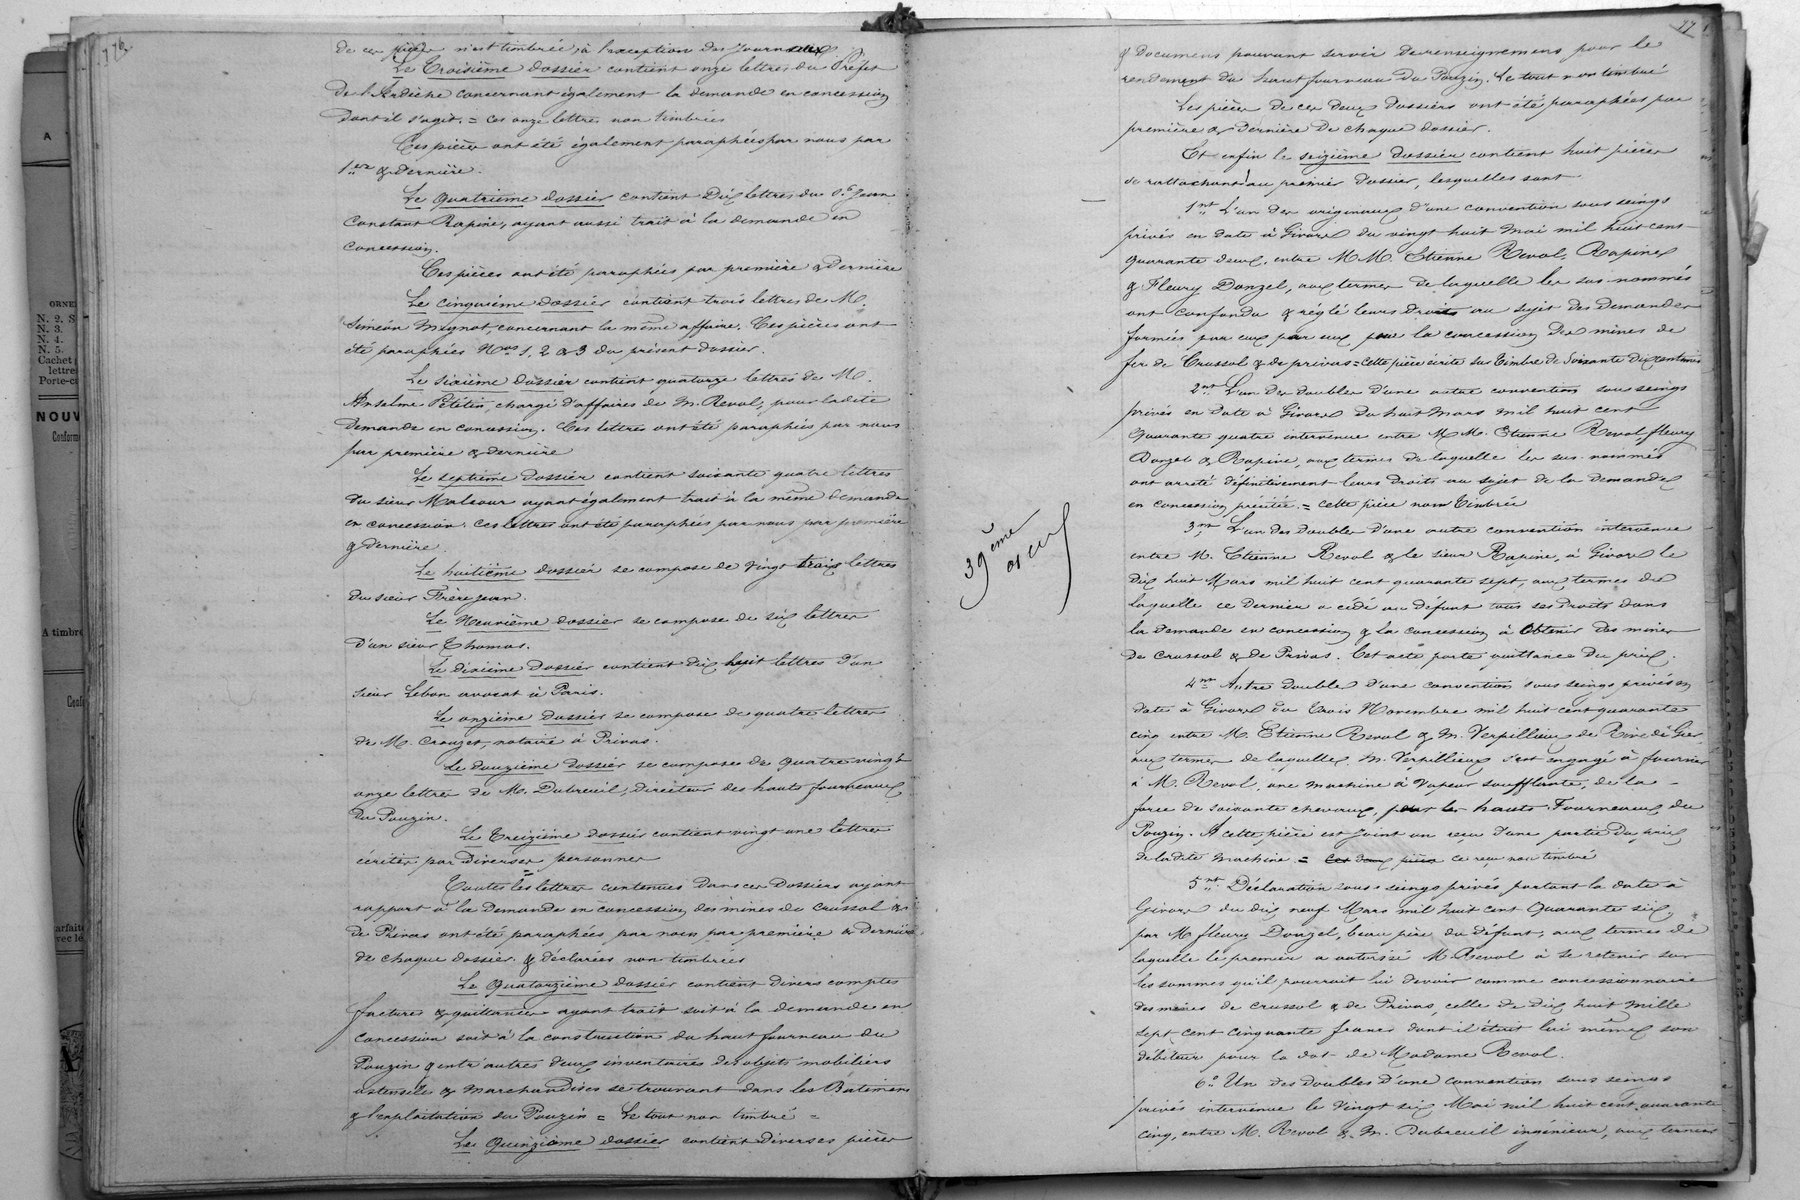 776
de ces pièces n'est timbrée, à l'exception des Journaux
Le Troisième dossier contient onze lettres du Préfet
de l'Ardèche concernant également la demande en concession
dont il s'agit. = Ces onze lettres non timbrées
Ces pièces ont été également paraphées par nous par
1ere & dernière.
Le quatrième dossier contient Dix lettres du Sr Jean
Constant Rapine, ayant aussi trait à la demande en
concession.
Ces pièces ont été paraphées par première & dernière
Le cinquième dossier contient trois lettres de M.
Siméon Mignot, concernant la même affaire. Ces pièces ont
été paraphées Nos 1, 2 & 3 du présent dossier.
Le sixième dossier contient quatorze lettres de M.
Anselme Petetin, chargé d'affaires de M. Revol, pour ladite
demande en concession. Ces lettres ont été paraphées par nous
par première & dernière
Le septième dossier contient soixante quatre lettres
du sieur Malsour ayant également trait à la même demande
en concession. Ces lettres ont été paraphées par nous par première
& dernière.
Le huitième dossier se compose de vingt trois lettres
du sieur Frèrejean.
Le Neuvième dossier se compose de six lettres
d'un sieur Thomas.
Le dixième dossier contient dix huit lettres d'un
sieur Lebon avocat à Paris.
Le onzième dossier se compose de quatre lettres
de M. Crouzet, notaire à Privas.
Le douzième dossier se compose de quatre vingt
onze lettres de M. Dubreuil, directeur des hauts fourneaux
du Pouzin.
Le Treizième dossier contient vingt une lettres
écrites par diverses personnes
Toutes les lettres contenues dans ces dossiers ayant
rapport à la demande en concession des mines de Crussol &
de Privas ont été paraphées par nous par première & dernière
de chaque dossier. & déclarées non timbrées
Le Quatorzième dossier contient divers comptes
factures & quittances ayant trait soit à la demande en
concession soit à la construction du haut fourneau du
Pouzin & entr'autres deux inventaires des objets mobiliers
ustensiles & marchandises se trouvant dans les Bâtimens
& l'exploitation du Pouzin = Le tout non timbré =
Le Quinzième dossier contient diverses pièces
77
& documens pouvant servir de renseignemens pour le
rendement du haut fourneau du Pouzin. Le tout non timbré
Les pièces de ces deux dossiers ont été paraphées par
première & dernière de chaque dossier.
Et enfin le seizième dossier contient huit pièces
se rattachant au premier dossier, lesquelles sont
1nt L'un des originaux d'une convention sous seings
privés en date à Givors du vingt huit mai mil huit cent
quarante deux, entre MM. Etienne Revol, Rapine
& Fleury Donzel, aux termes de laquelle les sus nommés
ont confondu & réglé leurs droits au sujet des demandes
formées par eux pour la concession des mines de
fer de Crussol & de privas = Cette pièce écrite sur timbre de soixante dix centimes
2nt L'un des doubles d'une autre convention sous seings
privés en date à Givors du huit Mars mil huit cent
Quarante quatre intervenue entre MM. Etienne Revol, fleury
Donzel & Rapine, aux termes de laquelle les sus nommés
ont arrêté définitivement leurs droits au sujet de la demande
en concession précitée. = Cette pièce non timbrée
39ème
3nt L'un des doubles d'une autre convention intervenue
entre M. Etienne Revol & le sieur Rapine, à Givors le
dix huit Mars mil huit cent quarante sept, aux termes de
laquelle ce dernier a cédé au défunt tous ses droits dans
la demande en concession & la concession à obtenir des mines
de Crussol & de Privas. Cet acte porte quittance du prix.
4nt Autre double d'une convention sous seings privés en
date à Givors du trois Novembre mil huit cent quarante
cinq entre M. Etienne Revol & M. Verpillieux de Rive de Gier,
aux termes de laquelle M. Verpillieux s'est engagé à fournir
à M. Revol, une machine à vapeur soufflante, de la
force de soixante chevaux, pour les hauts Fourneaux du
Pouzin. A cette pièce est joint un reçu d'une partie du prix
de ladite machine. = Ces deux pièces ce reçu non timbré
5nt Déclaration sous seings privés, portant la date à
Givors du dix neuf Mars mil huit cent Quarante six,
par M. fleury Donzel, beau père du défunt, aux termes de
laquelle le premier a autorisé M. Revol à se retenir sur
les sommes qu'il pourrait lui devoir comme concessionnaire
des mines de Crussol & de Privas, celle de dix huit mille
sept cent cinquante francs dont il était lui même son
débiteur pour la dot de Madame Revol.
6° Un des doubles d'une convention sous seings
privés intervenue le vingt six Mai mil huit cent quarante
cinq, entre M. Revol & M. Dubreuil ingénieur, aux termes
A
ORNE
N. 2. S
N. 3.
N. 4.
N. 5.
Cachet
lettre
Porte-c
NOUV
Conform
A timbre
Conf
arfaite
vec lé